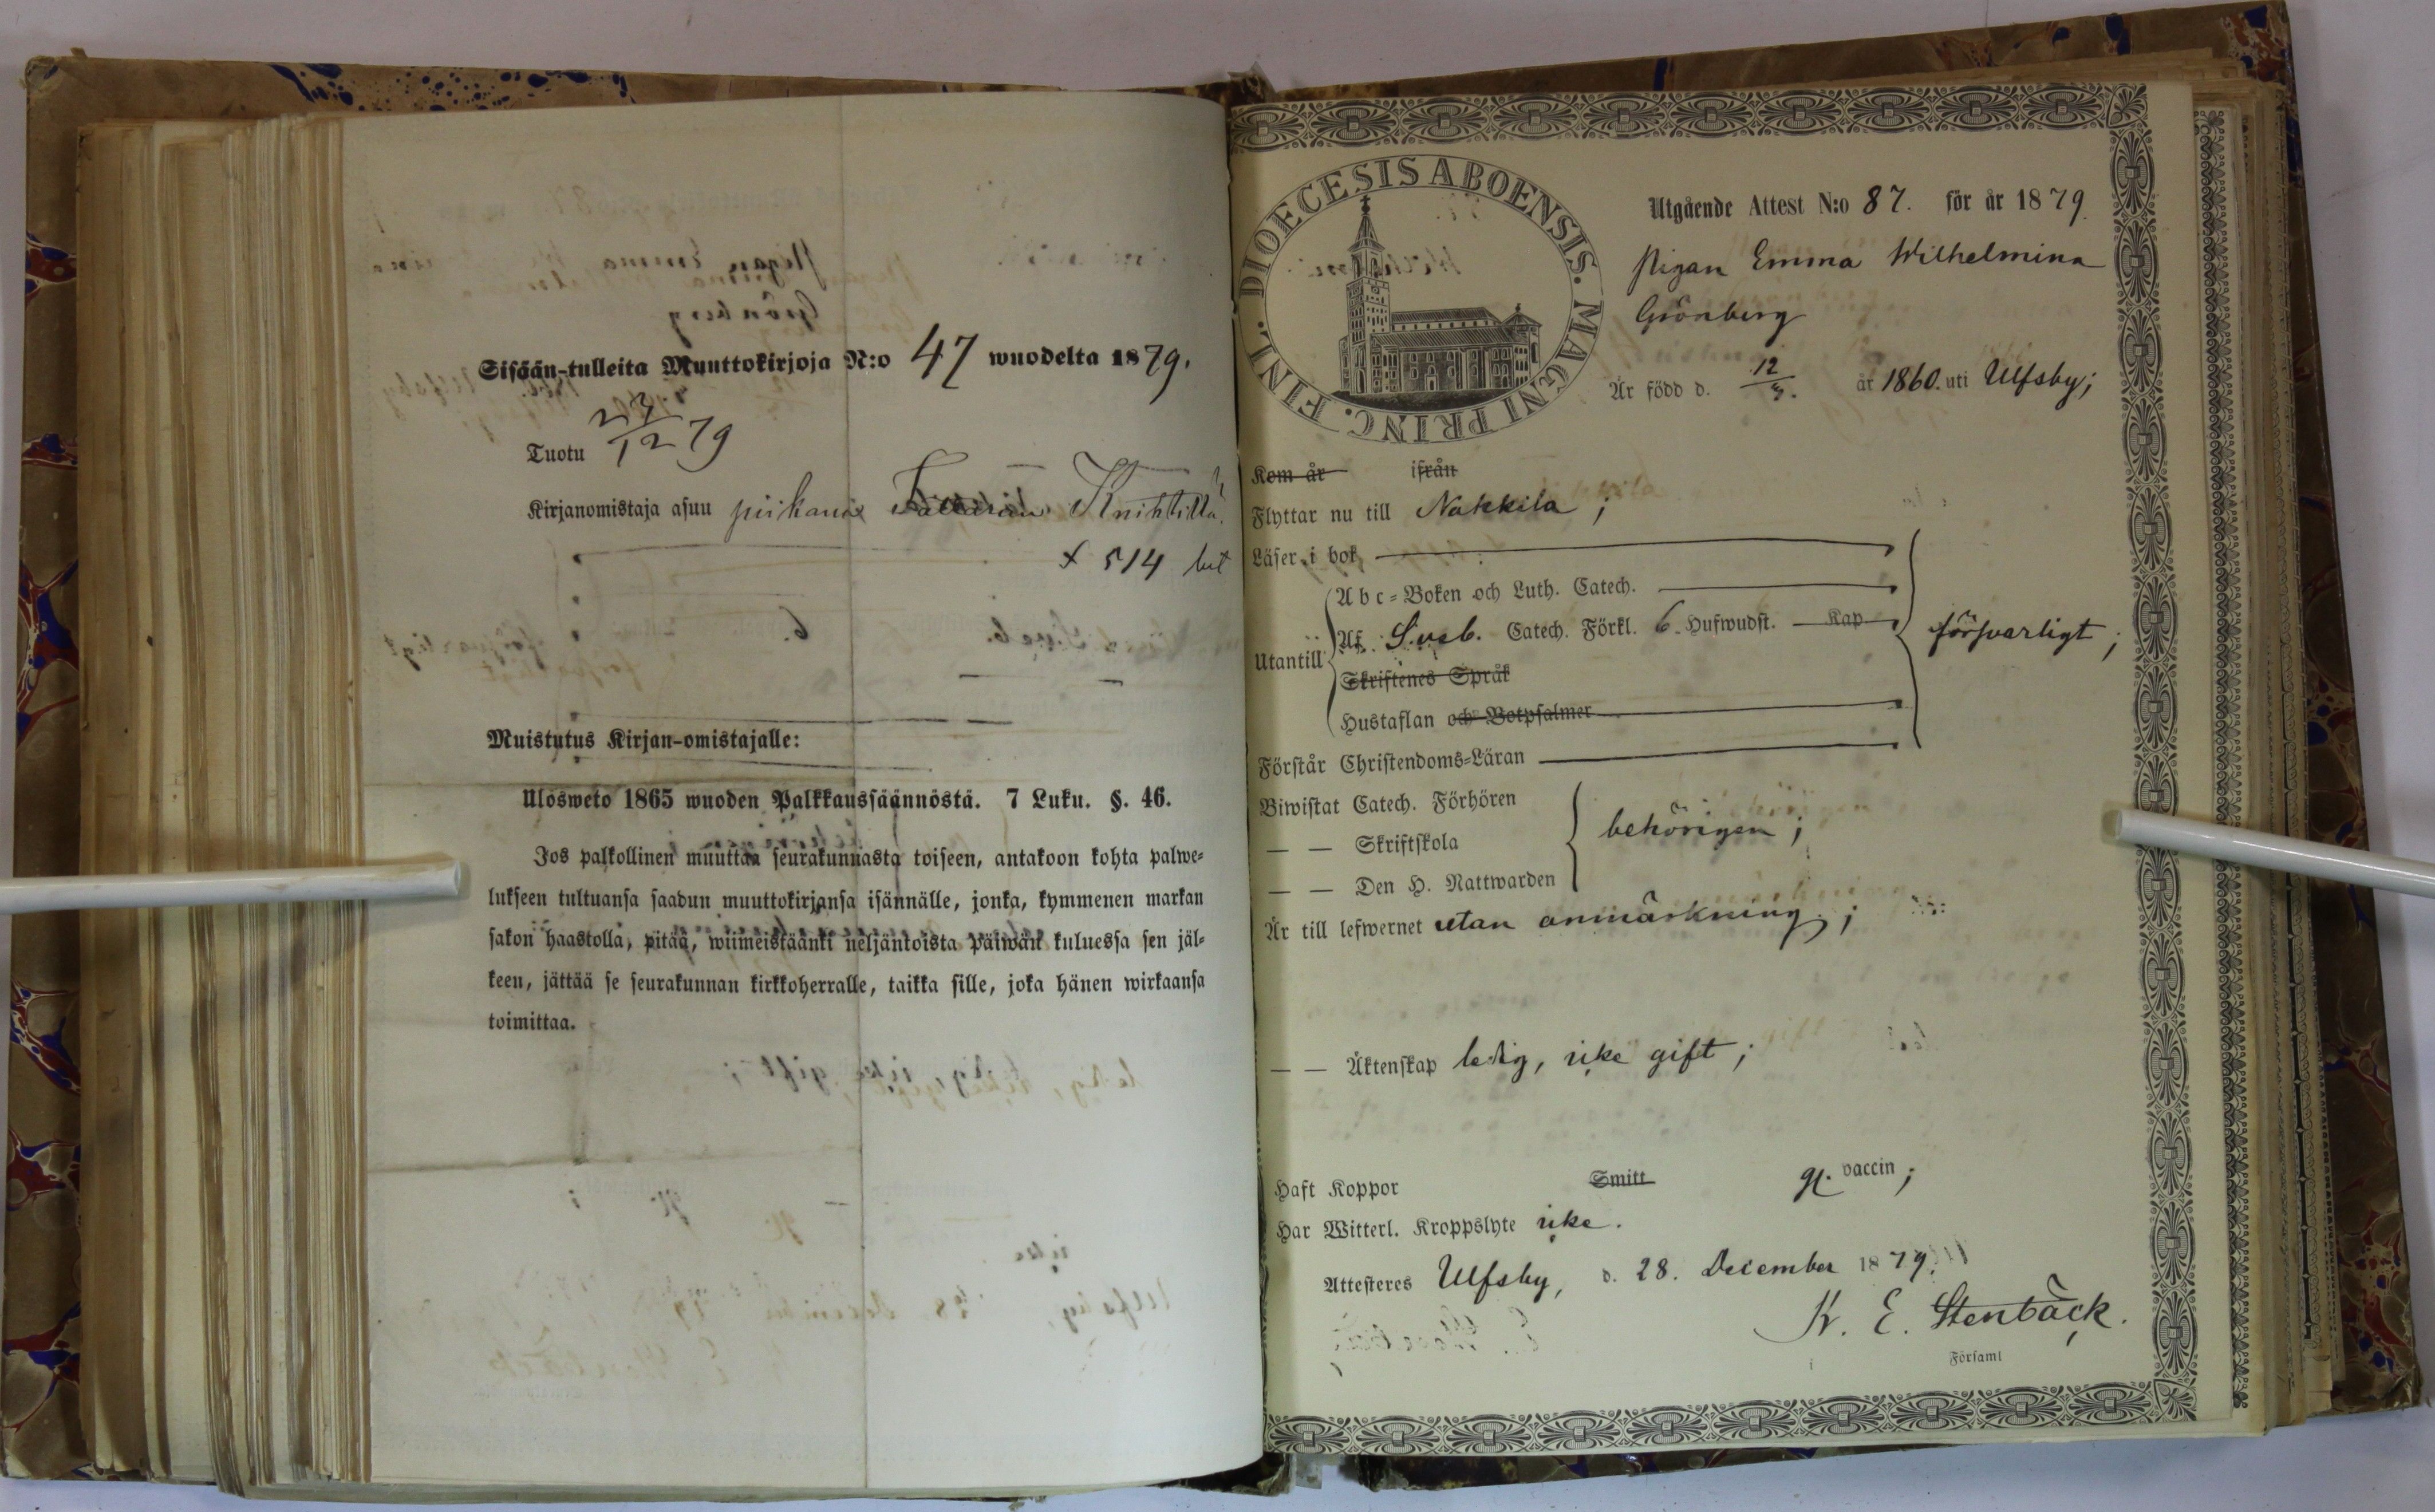 Sisään-tulleita Muuttokirjoja N:o 47 wuodelta 1879.
Tuotu 12 79
Kirjanomistaja asuu piikana Knihtilä
+ 514
Muistutus Kirjan-omistajalle:
Ulosweto 1865 wuoden Palkkaussäännöstä. 7 Luku. §. 46.
Jos palkollinen muuttaa seurakunnasta toiseen, antakoon kohta palwe-
lukseen tultuansa saadun muuttokirjansa isännälle, jonka, kymmenen markan
sakon haastolla, pitää, wiimeistäänki neljäntoista päiwän kuluessa sen jäl-
keen, jättää se seurakunnan kirkkoherralle, taikka sille, joka hänen wirkaansa
toimittaa.
DIOECESIS ABOENSIS. MAGNI PRINC. FINL.
Utgående Attest N:o 87. för år 1879.
Pigan Emma Wilhelmina
Grönberg
Är född d. 12 år 1860. uti Ulfsby;
Kom år ifrån
Flyttar nu till Nakkila;
Läser i bok
Utantill
Abc-Boken och Luth. Catech.
Af Sveb. Catech. Förkl. 6. Hufwudst. Kap
försvarligt;
Skriftenes Språk
Hustaflan och Botpsalmer
Förstår Christendoms-Läran
Biwistat Catech. Förhören
— — Skriftskola
behörigen;
— — Den H. Nattwarden
Är till lefwernet utan anmärkning;
— — Äktenskap ledig, icke gift;
Haft Koppor Smitt g. vaccin;
Har Witterl. Kroppslyte icke.
Attesteres Ulfsby, d. 28. December 1879.
K. E. Stenbäck.
i Församl